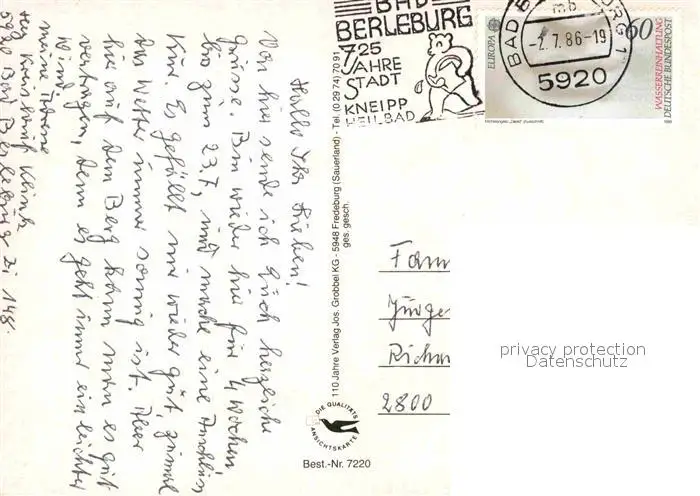 Hallo Ihr Lieben!
Von hier sende ich Euch herzliche
Grüsse. Bin wieder hier für 4 Wochen
bis zum 23.7, und mache eine Anschluss
Kur. Es gefällt mir wieder gut, zumal
das Wetter immer sonnig ist. Aber
hier auf dem Berg kann man es gut
vertragen, denn es geht immer ein leichter
Wind.
meine Adresse
Klinik
5920 Bad Berleburg Zi 148
110 Jahre Verlag Jos. Grobbel KG - 5948 Fredeburg (Sauerland) - Tel. (0 29 74) 70 91
ges. gesch.
BAD
BERLEBURG
725
JAHRE
STADT
KNEIPP
HEILBAD
BAD
mb
-2.7.86-19
5920
EUROPA
60
WASSERREINHALTUNG
DEUTSCHE BUNDESPOST
Fam
Jürge
Richa
2800
privacy protection
Datenschutz
DIE QUALITÄTS
ANSICHTSKARTE
Best.-Nr. 7220